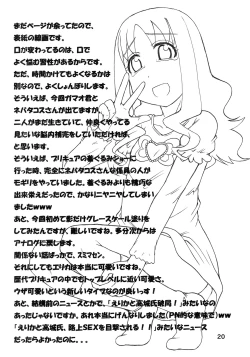 まだページが余ってたので、
表紙の線画です。
口が変わってるのは、口で
よく悩む習性があるからです。
ただ、時間かけてもよくなるかは
別なので、よくしょんぼりします。
そういえば、今回ガマオ君と
ネバタコスさんが出てますが、
二人がまだ生きていて、仲良くやってる
見たいな脳内補完をしていただければ、
と思います。
そういえば、プリキュアの着ぐるみショーに
行った時、完全にネバタコスさんな係員の人が
モギリをやっていました。着ぐるみよりも精巧な
出来栄えだったので、かなりニヤニヤしてしまい
ましたwww
あと、今回初めて影だけグレースケール塗りを
してみたんですが、難しいですね。多分次からは
アナログに戻します。
関係ない話ばっかで、スミマセン。
それにしてもエリカは本当に可愛いですね。
歴代プリキュアの中でもトップレベルに近い可愛さ。
ウザ可愛いという新しいタイプなのが良いっす!
あと、結構前のニュースとかで、「えりかと高城氏破局!」みたいなの
あったじゃないですか。あれ本当にげんなりしました(PN的な意味で)ww
「えりかと高城氏、路上SEXを目撃される!!」みたいなニュース
だったらよかったのに。。。
20